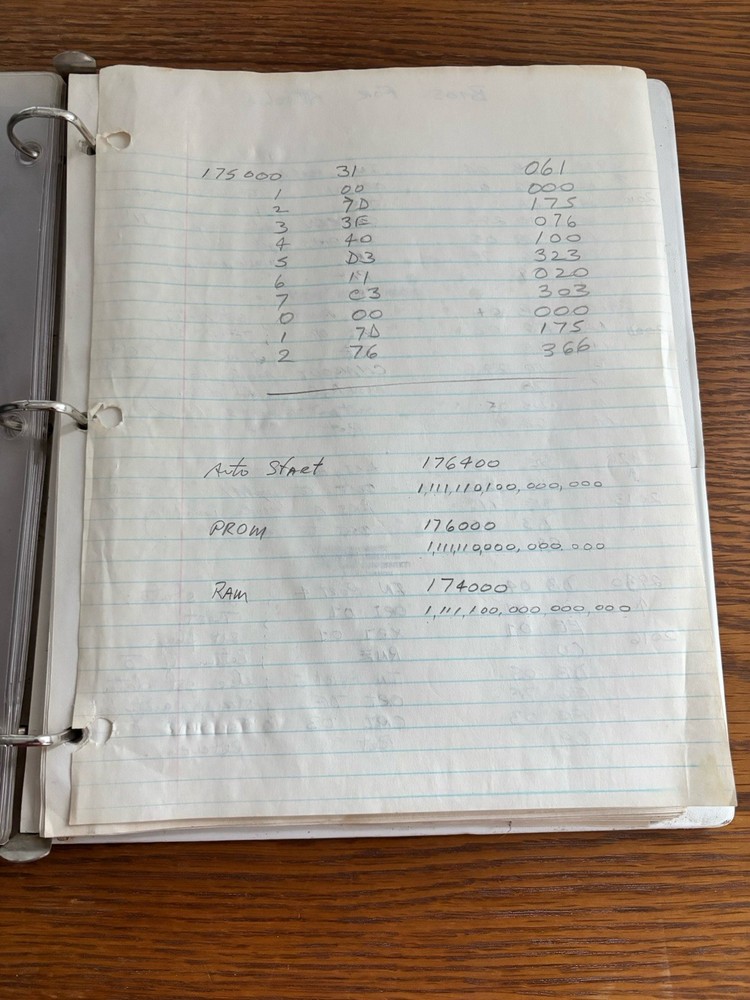 175000 31 061
1 00 000
2 7D 175
3 3E 076
4 40 100
5 D3 323
6 11 020
7 C3 303
0 00 000
1 7D 175
2 76 366
Auto Start 176400
1,111,110,100,000,000
PROM 176000
1,111,110,000,000.000
RAM 174000
1,111,100,000,000,000